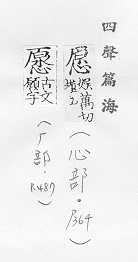 四聲篇海
愿 娱萬切
(心部・P364)
愿 古文願字
(厂部・P487)